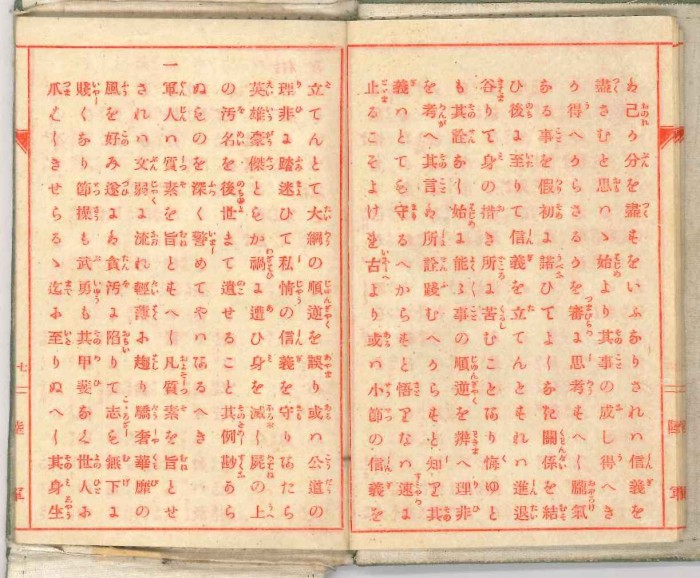 は己か分を盡すをいふなりされは信義を
盡さむと思はゝ始より其事の成し得へき
か得へからさるかを審に思考すへし朧氣
なる事を假初に諾ひてよしなき關係を結
ひ後に至りて信義を立てんとすれは進退
谷りて身の措き所に苦むことあり悔ゆと
も其詮なし始に能々事の順逆を辨へ理非
を考へ其言は所詮踐むへからすと知り其
義はとても守るへからすと悟りなは速に
止るこそよけれ古より或は小節の信義を
立てんとて大綱の順逆を誤り或は公道の
理非に踏迷ひて私情の信義を守りあたら
英雄豪傑ともか禍に遭ひ身を滅し屍の上
の汚名を後世まて遺せること其例尠から
ぬものを深く警めてやはあるへき
一軍人は質素を旨とすへし凡質素を旨とせ
されは文弱に流れ輕薄に趨り驕奢華靡の
風を好み遂には貪汚に陷りて志も無下に
賤くなり節操も武勇も其甲斐なく世人に
爪はしきせらるゝ迄に至りぬへし其身生
七
陸軍